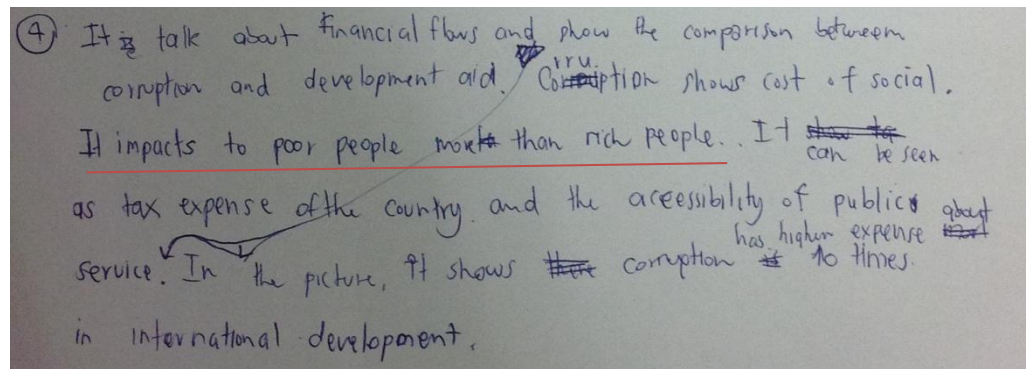 4 It talk about financial flows and show the comparison between
corruption and development aid. Corruption shows cost of social.
It impacts to poor people more than rich people. It can be seen
as tax expense of the country and the acceessibility of public
service. In the picture, it shows corruption has higher expense about 10 times.
in international development.